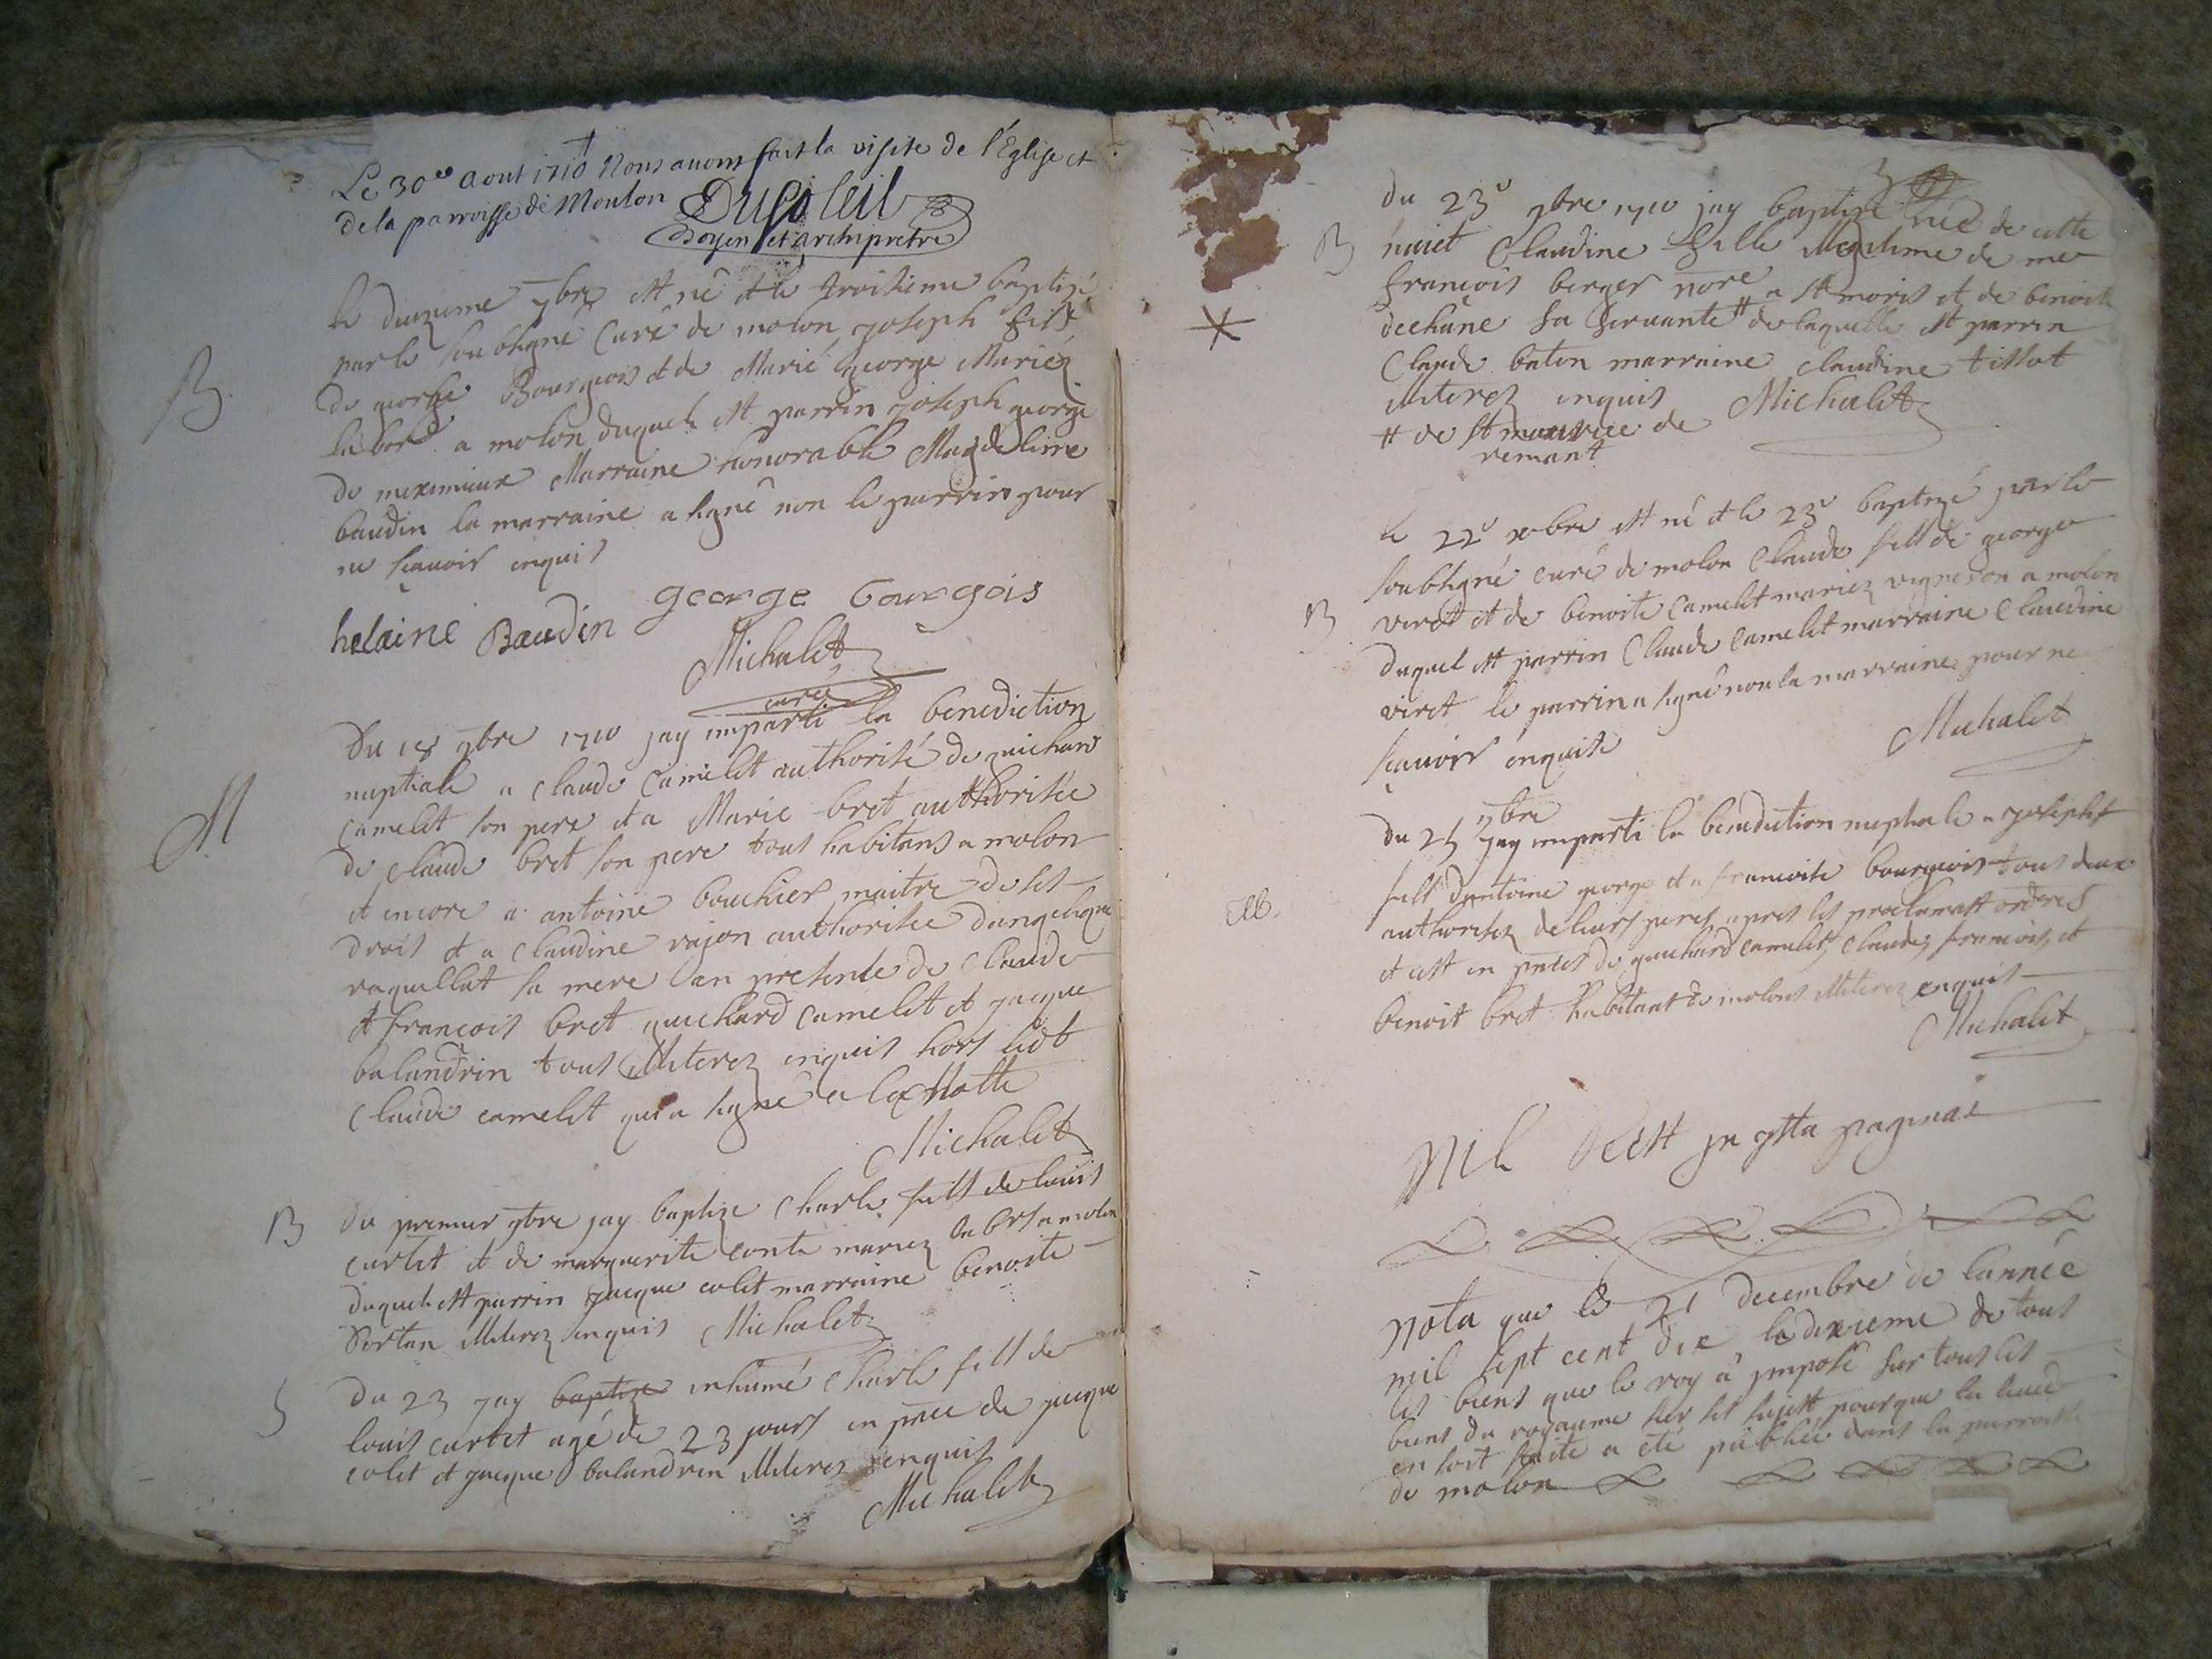 Le 30e Aout 1710 Nous avons fait la visite de l'Eglise et
de la parroisse de Moulon Dusoleil
Doyen et archipretre
B
le deuzieme 7bre est né et le troisieme baptizé
par le soubsigné Curé de molon joseph fils
de george Bourgeois et de Marie george Mariéz
labor a molon duquel est parrin joseph george
de meximieux Marraine honorable Magdeleine
baudin la marraine a signé non le parrin pour
ne sçavoir enquis
george bourgois
helaine Baudin
Michalet
curé
M
Du 18 9bre 1710 jay imparti la benediction
nuptiale a claude Camelet authorisé de guichard
camelet son pere et a Marie bret authorisée
de claude bret son pere tous habitans a molon
et encore a antoine bouchier maitre de ses
drois et a claudine rajon authorisée dangelique
raquillat sa mere en presence de claude
et francois bret guichard camelet et jacque
balandrin tous illiterez enquis hors ledt
claude camelet qui a signé a la Notte
Michalet
B
du premier 9bre jay baptize charle fils de louis
curtet et de marguerite conte mariez labrs a molon
duquel est parrin jacque colet marraine benoite
dortan illiterez enquis Michalet
S
du 23 jay baptize inhumé charle fils de
louis curtet agé de 23 jours en pnce de jacque
colet et jacque balandrin illiterez enquis
Michalet
B
du 23e 9bre 1710 jay baptize née de cette
nuict Claudine fille illegitime de me
françois berger nore a st moris et de benoite
dechane sa servante # de laquelle est parrin
Claude baton marraine claudine tissot
illiterez enquis Michalet
# de st maurice de
remant
B
le 22e xbre est né et le 23e baptizé par le
soubsigné curé de molon Claude fils de george
viret et de benoite camelet mariez vigneron a molon
duquel est parrin Claude camelet marraine Claudine
viret le parrin a signé non la marraine pour ne
sçavoir enquise Michalet
M.
9bre
du 25 jay imparti la benediction nuptiale a joseph
fils dantoine george et a francoise bourgeois tous deux
authorisez de leurs peres apres les proclamaons ordres
et cest en pnces de guichard camelet, claude, francois, et
benoit bret habitant de molons illiterez enquis
Michalet
Nil deest in ista pagina
Nota que le 21 decembre de lannée
mil sept cent dix le dixieme de tous
les biens que le roy a imposé sur tous les
biens du royaume sur ses sujets pour que la levée
en soit faite a eté publiée dans la parroisse
de molon